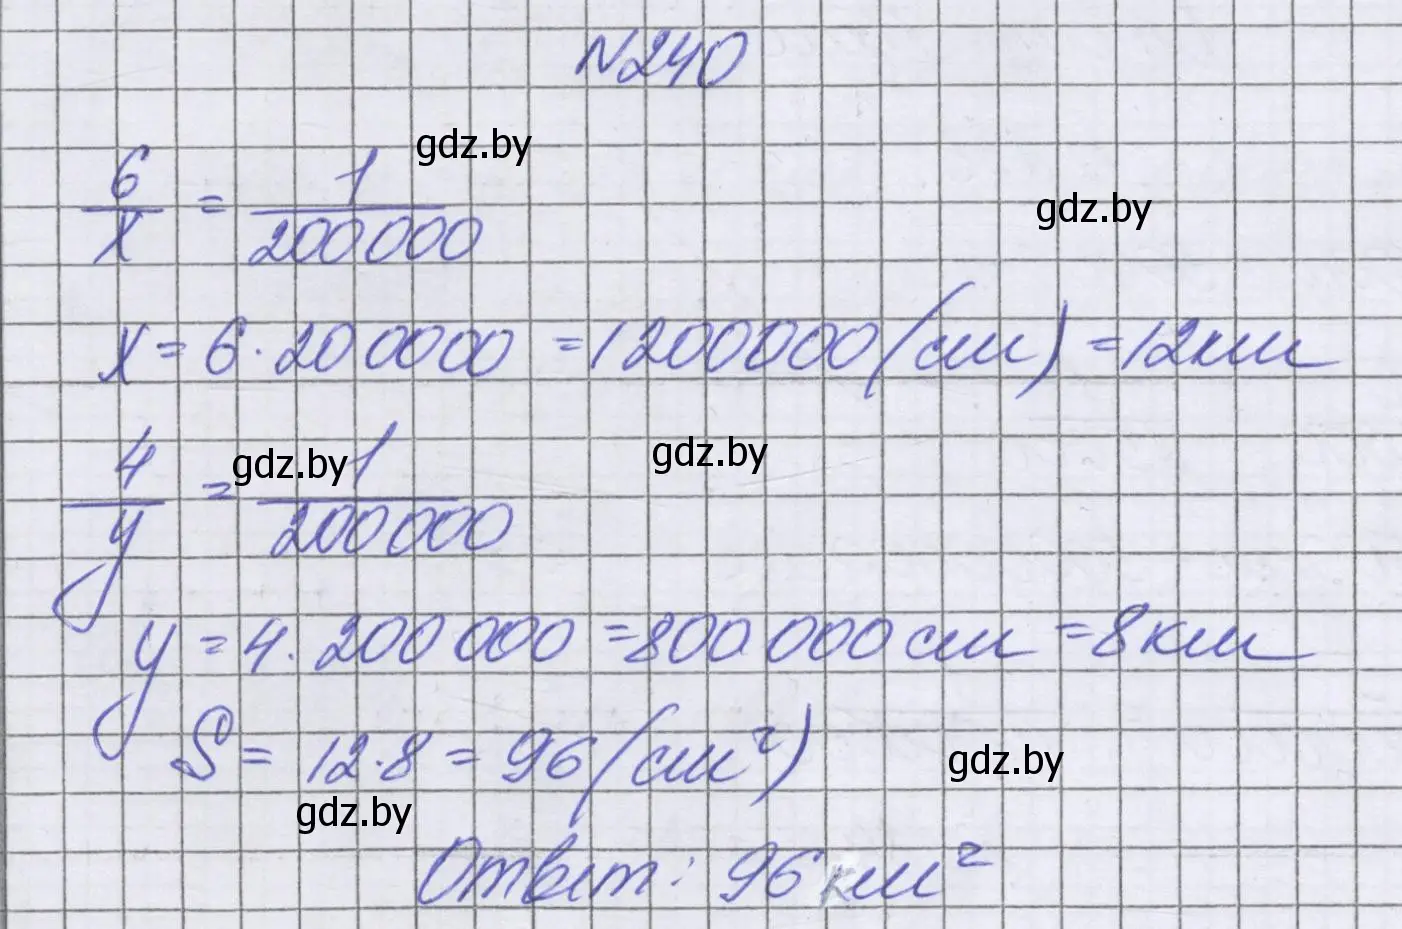 N240
gdz.by
6/x = 1/200 000
gdz.by
x = 6 · 200000 = 1200000 (см) = 12км
4/y = 1/200 000
gdz.by
gdz.by
y = 4 · 200 000 = 800 000 см = 8км
S = 12·8 = 96 (см²)
gdz.by
gdz.by
Ответ: 96 км²